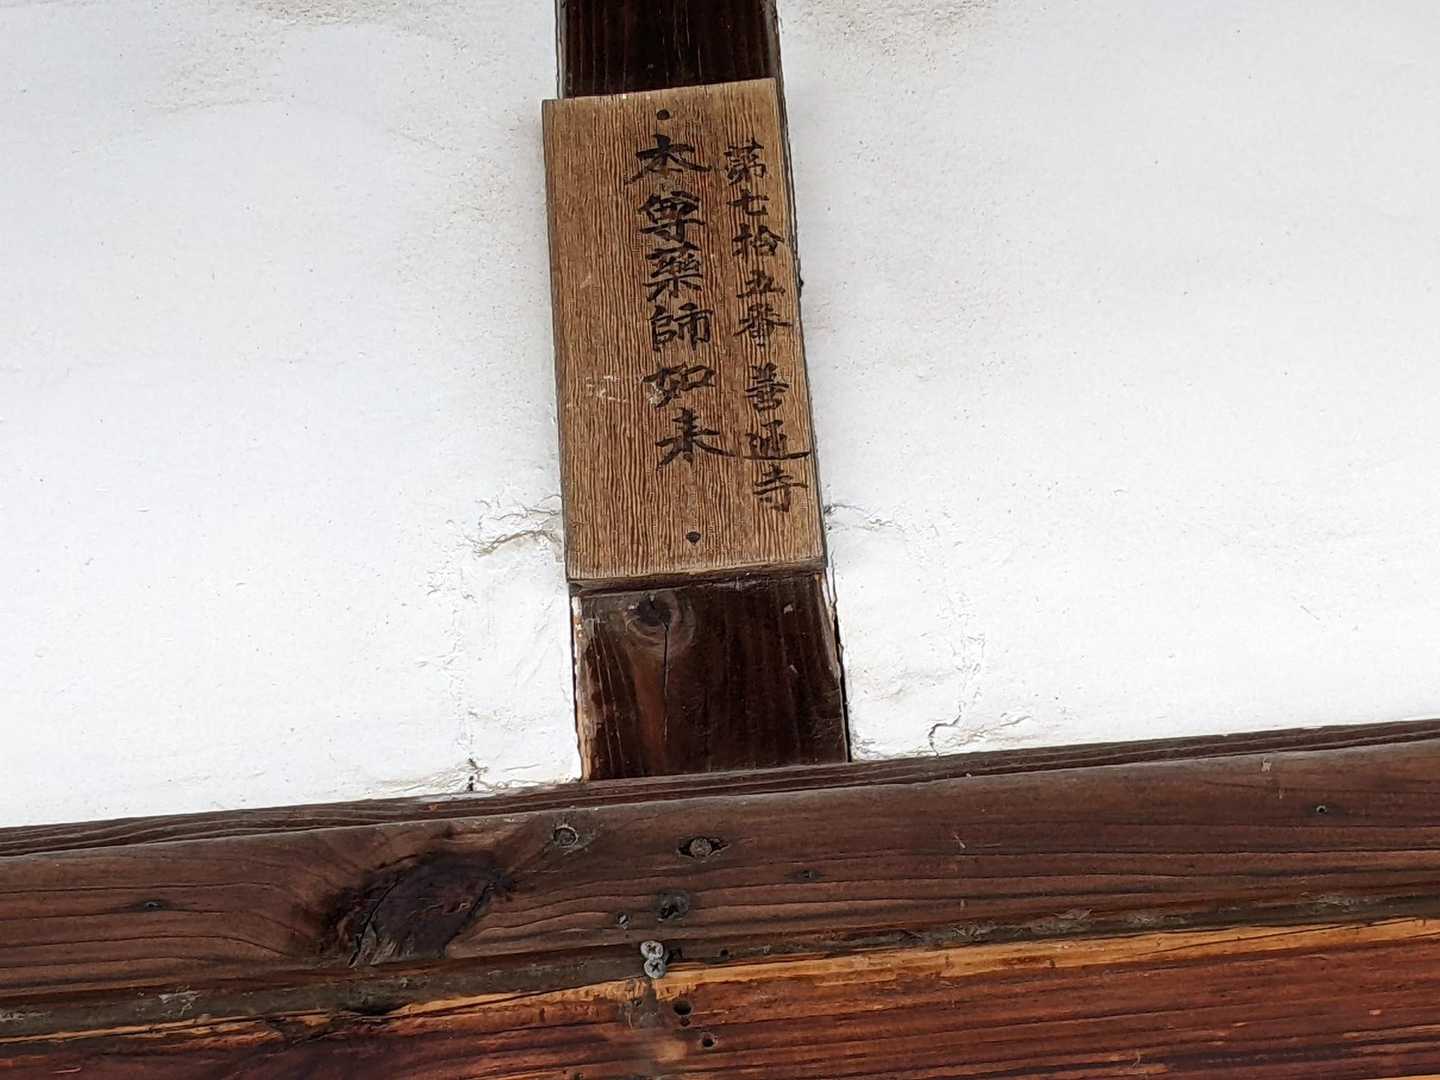 第七拾五番 善通寺
本尊薬師如来